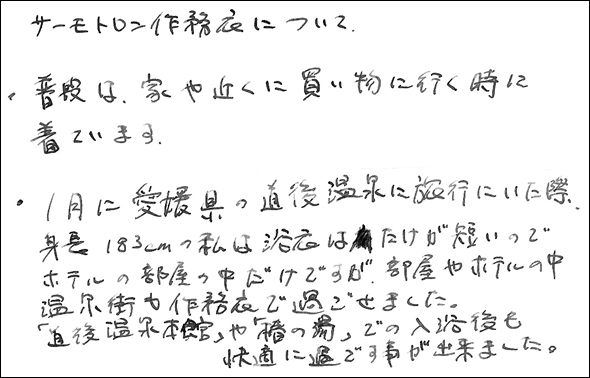 サーモトロン作務衣について.
・普段は、家や近くに買い物に行く時に
着ています.
・1月に愛媛県の直後温泉に旅行にいた際.
身長183cmの私は浴衣はたけが短いので
ホテルの部屋の中だけですが、部屋やホテルの中
温泉街も作務衣で過ごせました。
「直後温泉本館」や「椿の湯」での入浴後も
快適に過ごす事が出来ました。